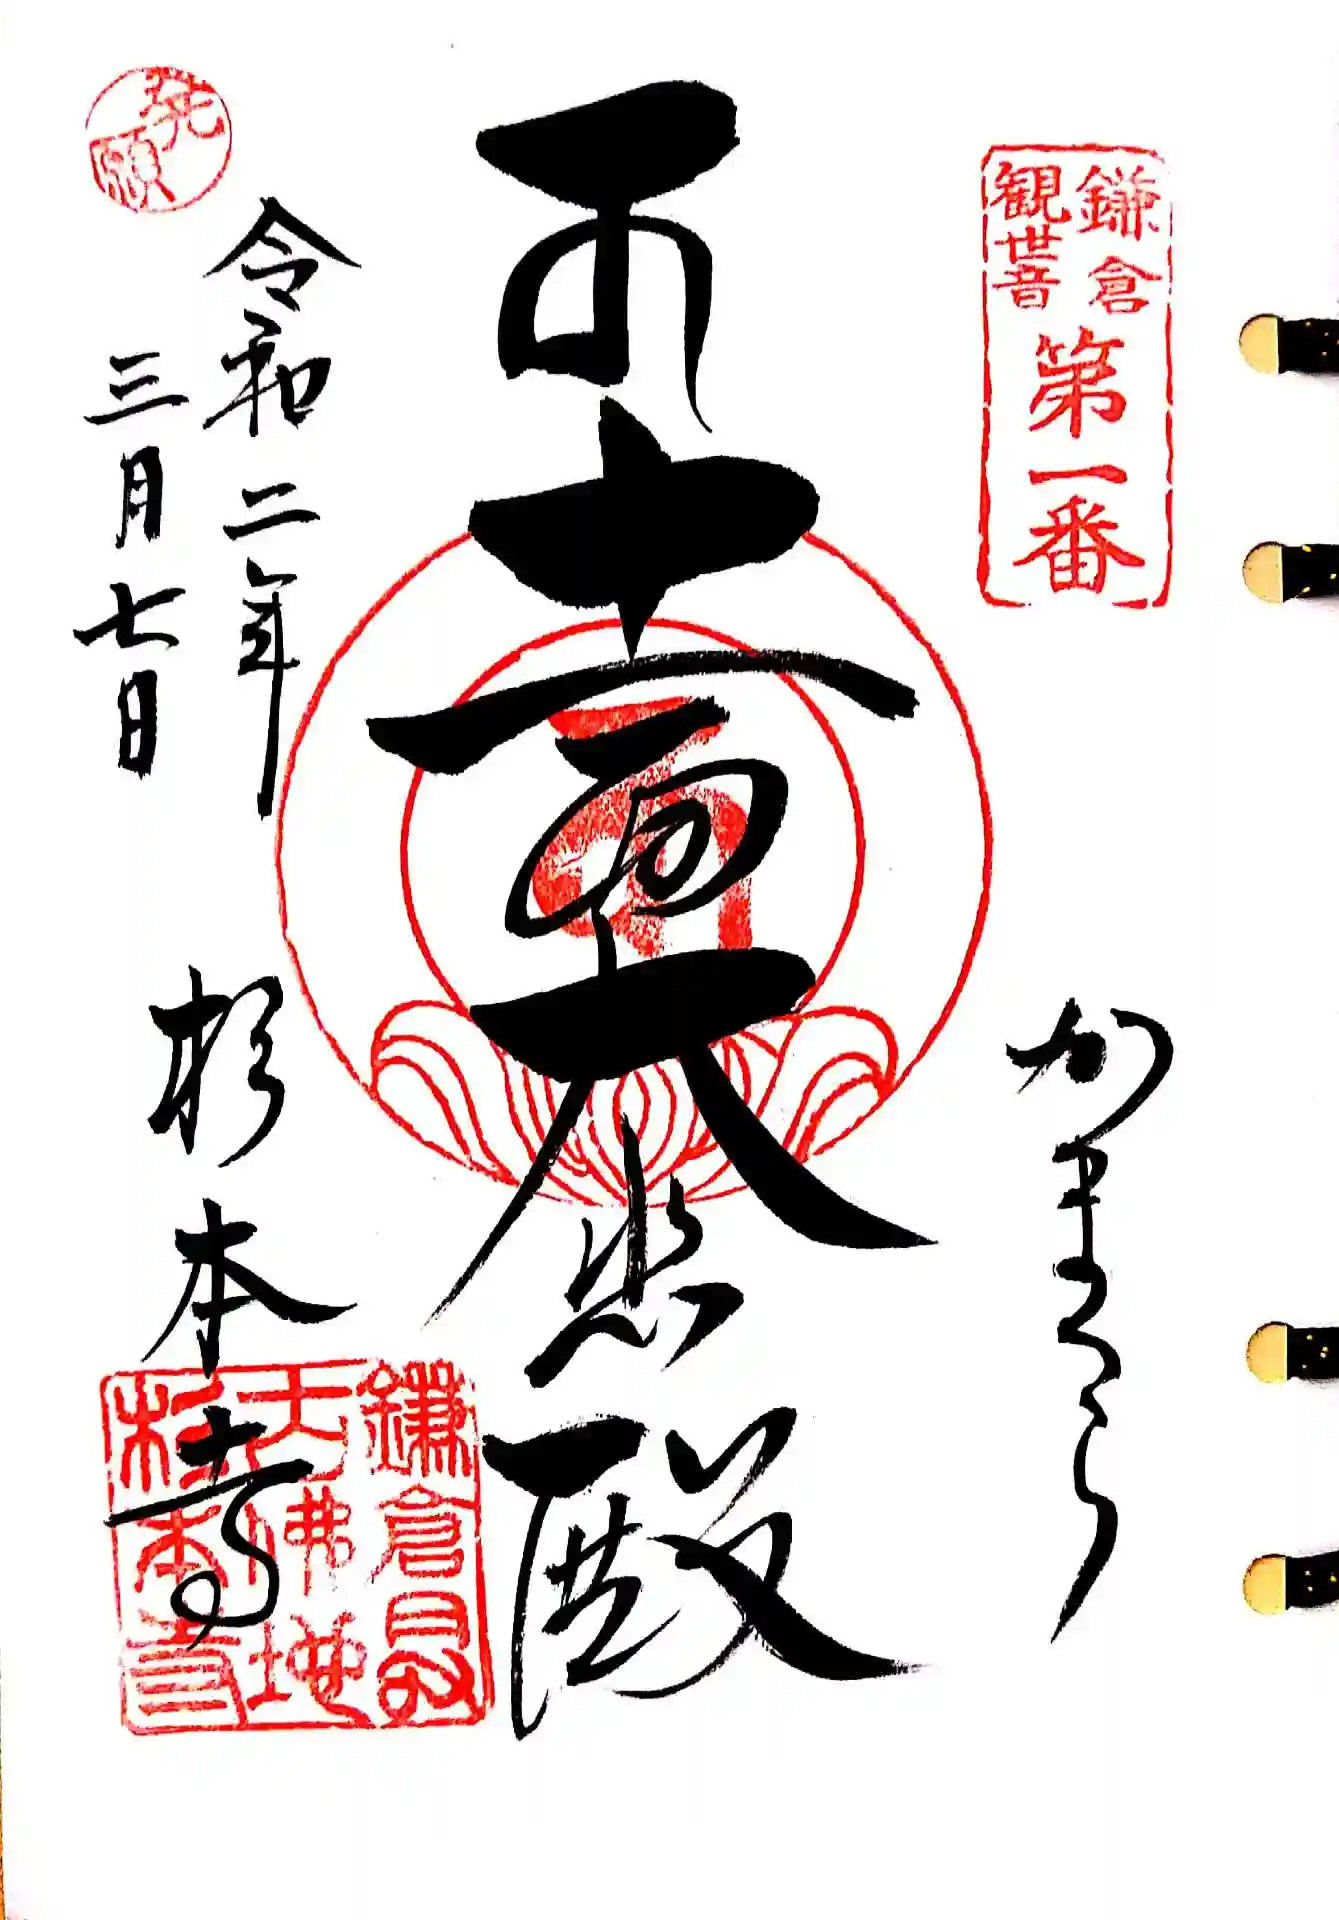 鎌倉
観世音
第一番
かまくら
十一面大悲殿
発願
令和二年
三月七日
杉本寺
鎌倉最
古佛地
杉本寺